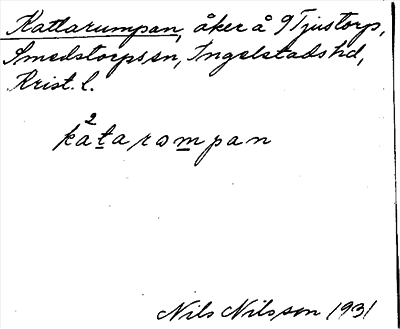 Kattarumpan, åker å 9 Tjustorp,
Smedstorps sn, Ingelstads hd,
Krist. l.
2
katarompan
Nils Nilsson 1931